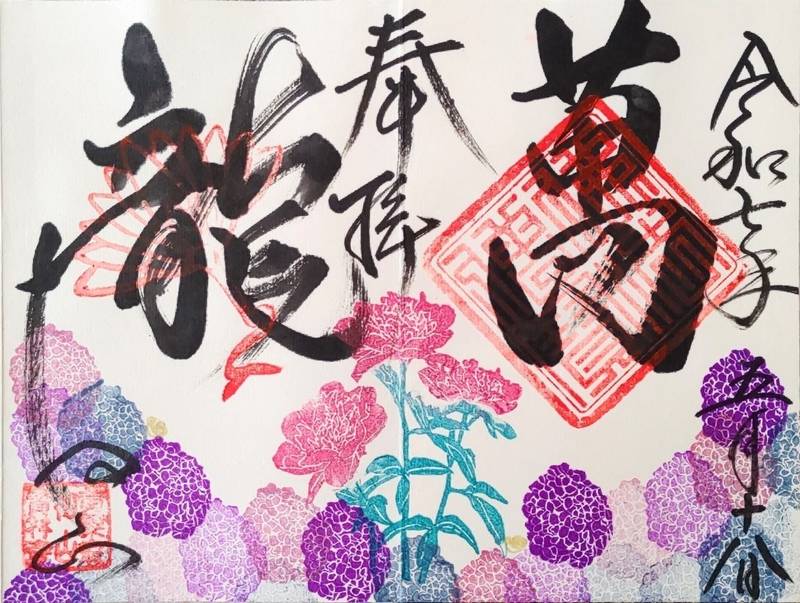 令和七年
五月十八日
萬
奉拝
龍